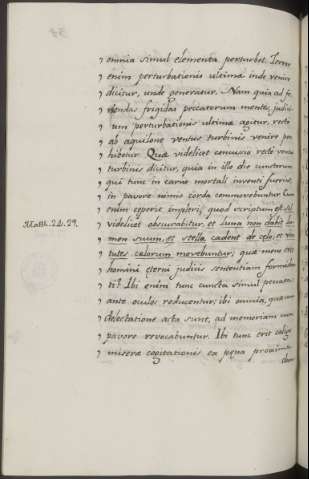 omnia simul elementa perturbet. Terror
enim perturbationis ultimæ inde venire
dicitur, unde generatur. Nam quia ad fe
riendas frigidas peccatorum mentes, judici
um perturbationis ultimæ agitur, recte
ab aquilone ventus turbinis venire per
hibetur. Quæ videlicet concussio recte ventus
turbinis dicitur, quia in illo die cunctorum
qui tunc in carne mortali inventi fuerint
in pavore nimio corda commovebuntur. Cum
enim ceperit impleri, quod scriptum est: Sol
videlicet obscurabitur, et luna non dabit lu
men suum, et stellæ cadent de celo, et vir
tutes cælorum movebuntur; quæ mens
homini eterni judicis sententiam formida
bit? Ibi enim tunc cuncta simul peccata
ante oculos reducentur; ibi omnia, quæ cum
delectatione acta sunt, ad memoriam cum
pavore revocabuntur. Ibi tunc erit caligo
miseræ cogitationis ex pœna proxima
Matth. 24. 29.